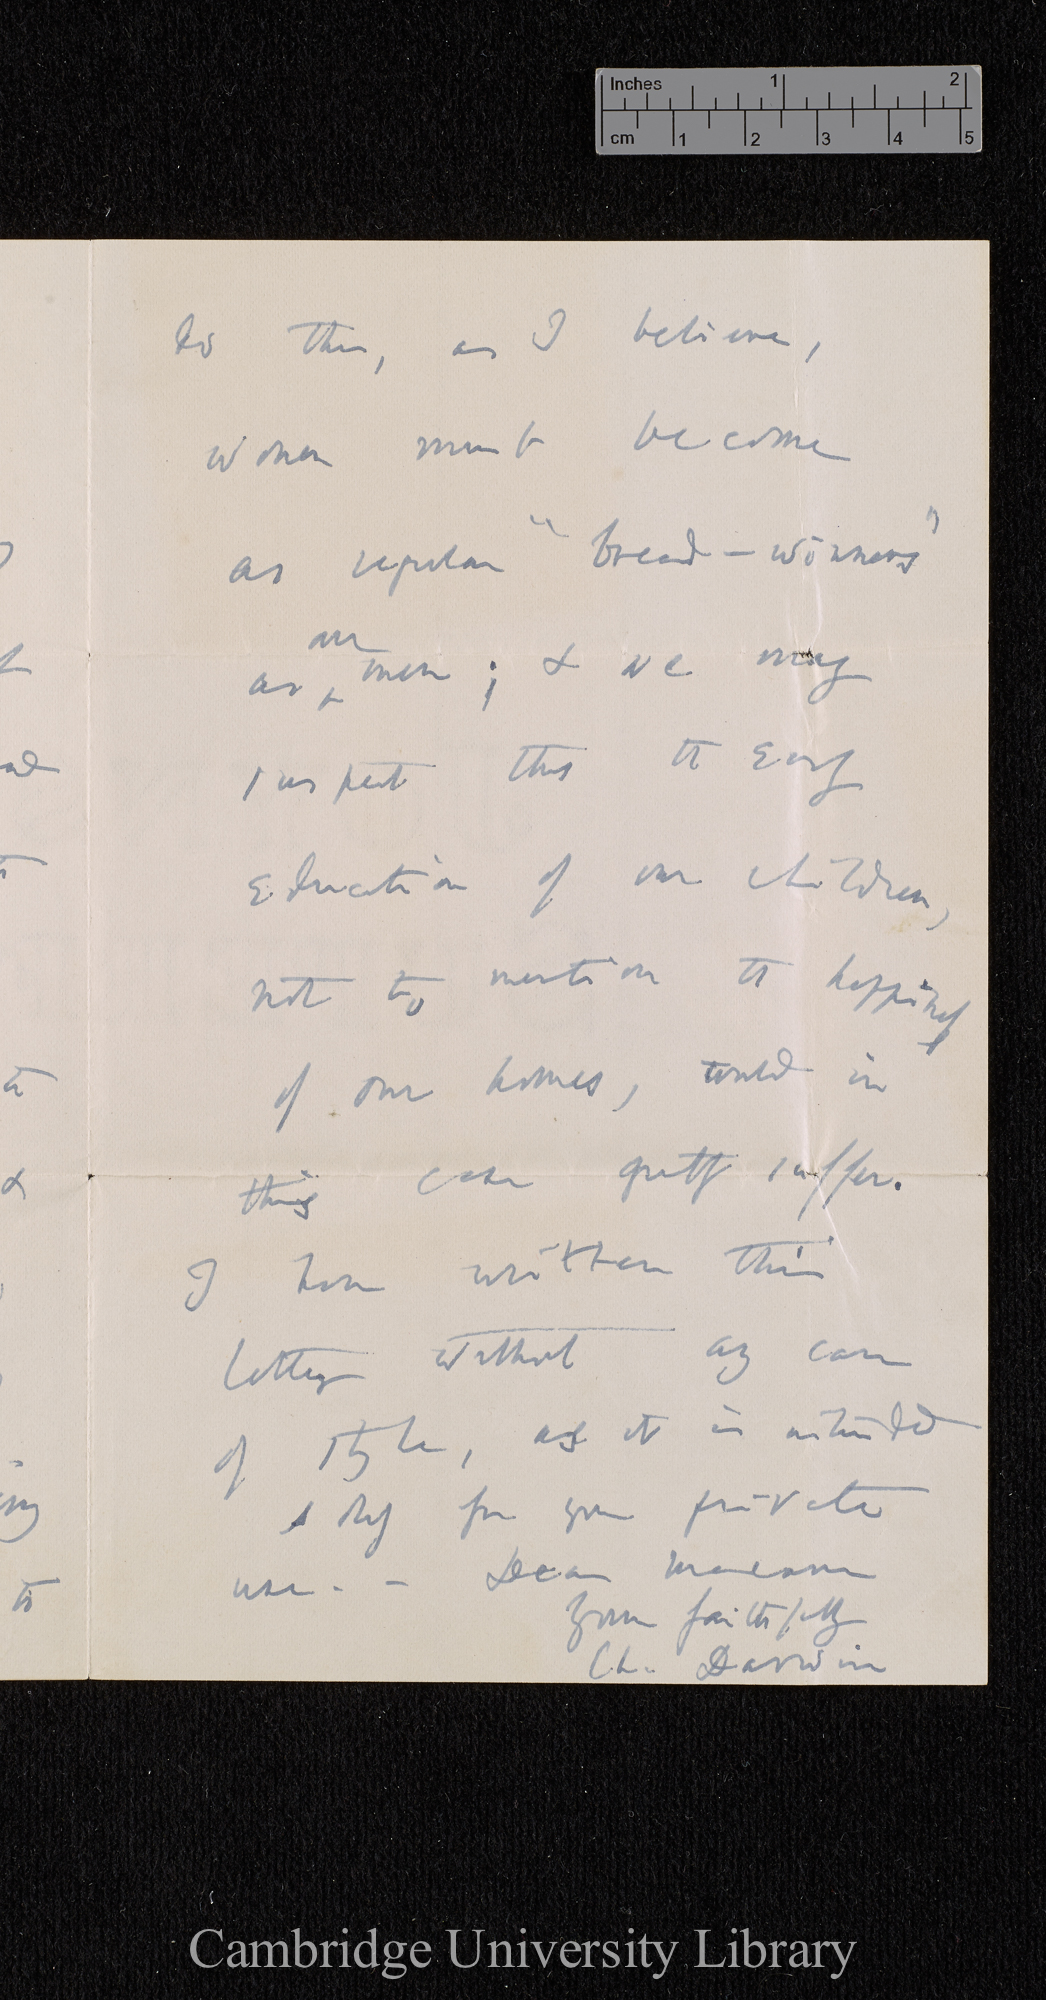 Inches 1 2
cm 1 2 3 4 5
do this, as I believe,
women must become
as regular "bread-winners"
are
as men; & we may
suspect that the early
education of our children,
not to mention the happiness
of our homes, would in
this case greatly suffer.
I have written this
letter without any care
of style, as it is intended
only for your private
use. — Dear Madam
Yours faithfully
Ch. Darwin
Cambridge University Library